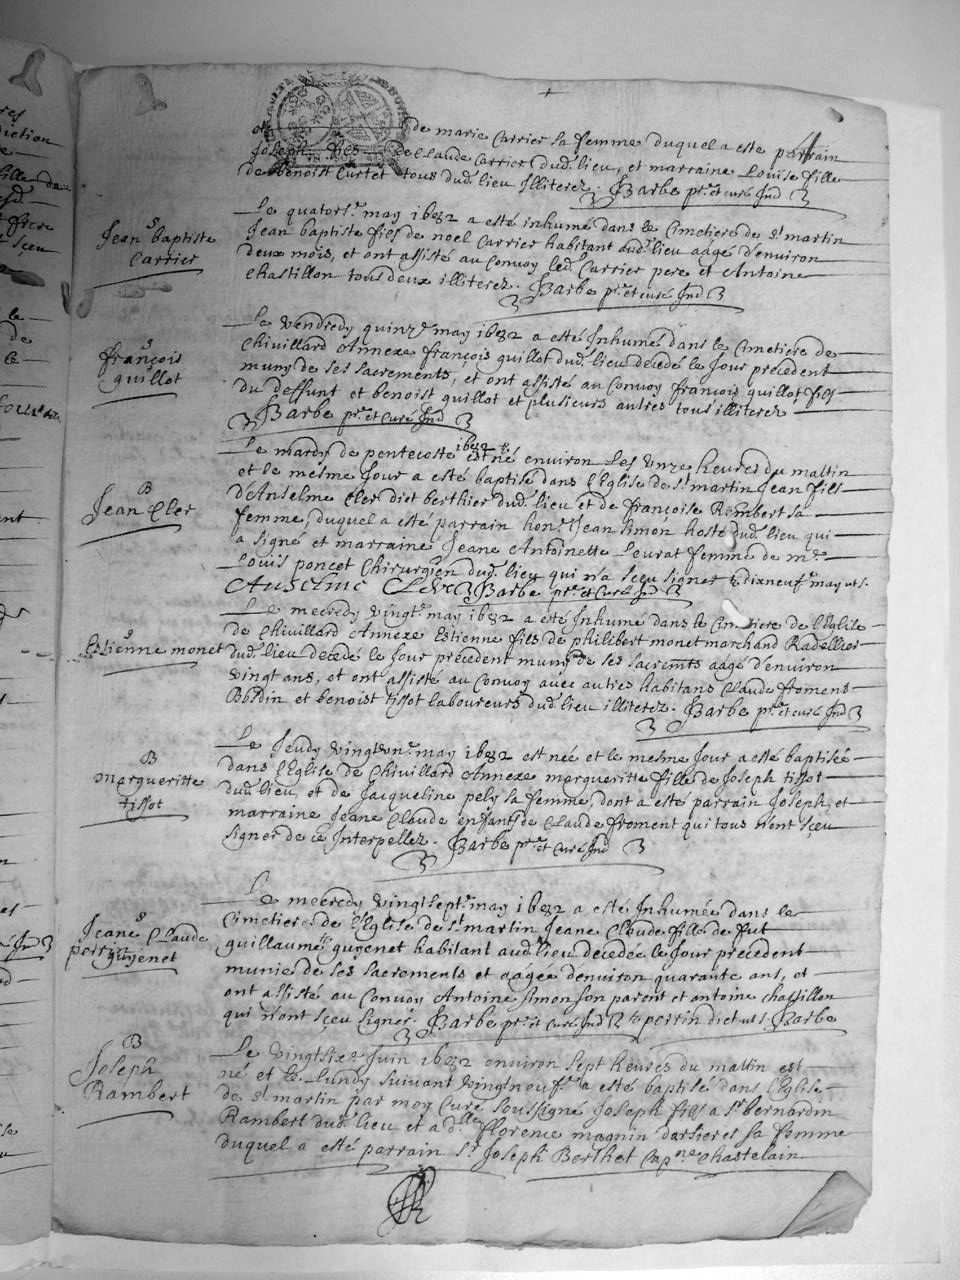 de marie Carrier sa femme duquel a este parrain
Joseph fils de Claude Carrier dud. lieu, et marraine Louise fille
de Benoist Curtet tous dud. lieu illiterez. Barbe ptre et curé Ind
S
Jean baptiste
Carrier
Le quators.e may 1682 a esté inhumé dans le Cimetiere de St martin
Jean baptiste fils de noel Carrier habitant aud. lieu aagé d'environ
deux mois, et ont assisté au Convoy led. Carrier pere et Antoine
Chastillon tous deux illiterez. Barbe ptre et curé Ind
S
françois
guillot
Le vendredy quinz.e may 1682 a esté Inhumé dans le Cimetiere de
Chivillard Annexe françois guillot dud. lieu decedé le Jour precedent
muny de ses sacrements, et ont assisté au Convoy françois guillot fils
du deffunt et benoist guillot et plusieurs autres tous illiterez
Barbe ptre et Curé Ind
B
Jean Cler
Le mardy de pentecoste 1682 est né environ Les unze heures du mattin
et le mesme Jour a esté baptise dans l'Eglise de St martin Jean fils
d'Anselme Cler dict berthier dud. lieu et de françoise Rembert sa
femme, duquel a esté parrain hon.e Jean Simon hoste dud. lieu qui
a signé et marraine Jeane Antoinette Leurat femme de m.e
Louis poncet Chirurgien dud. lieu qui n'a sceu signer dixneuf.e may
Anselme Cler Barbe ptre et Curé Ind
S
Estienne monet
Le mecredy vingt.e may 1682 a esté Inhumé dans le Cimetiere de l'Eglise
de Chivillard Annexe Estienne fils de philibert monet marchand Radellier
dud. lieu decedé le Jour precedent muny de ses sacremts aagé d'environ
vingt ans, et ont assisté au Convoy avec autres habitans Claude fromens
Boldin et benoist tissot laboureurs dud. lieu illiterez. Barbe ptre et curé Ind
B
margueritte
tissot
Le Jeudy vingt un.e may 1682 est née et le mesme Jour a esté baptisée
dans l'Eglise de Chivillard Annexe margueritte fille de Joseph tissot
dud. lieu, et de Jacqueline pely sa femme, dont a esté parrain Joseph, et
marraine Jeane Claude enfants de Claude froment qui tous n'ont sceu
signer de ce Interpellez. Barbe ptre et Curé Ind
S
Jeane Claude
perrin guyenet
Le mecredy vingt sept.e may 1682 a esté Inhumée dans le
Cimetiere de l'Eglise de St martin Jeane Claude fille de fut
guillaume guyenet habitant aud. lieu decedée le Jour precedent
munie de ses sacrements et aagée denviron quarante ans, et
ont assisté au Convoy Antoine simon son parent et antoine chastillon
qui n'ont sceu signer. Barbe ptre et Curé Ind perrin dict Barbe
B
Joseph
Rambert
Le vingt six.e Juin 1682 environ sept heures du mattin est
né et le Lundy suivant vingt neuf.e a esté baptisé dans l'Eglise
de St martin par moy Curé soussigné Joseph fils a Sr bernardin
Rambert dud. lieu et a d.lle florence magnin darsieres sa femme
duquel a esté parrain Sr Joseph Berthet Capne Chastelain